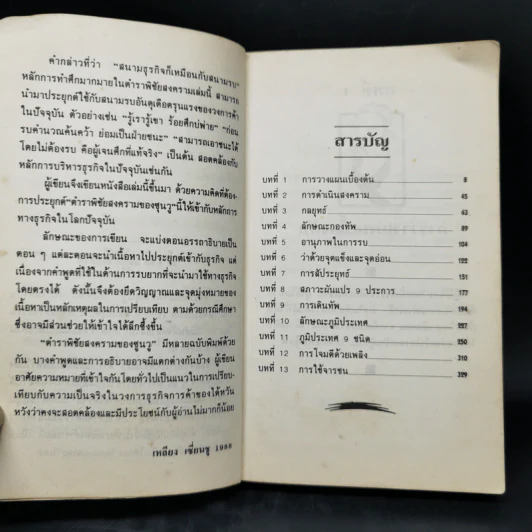 คำกล่าวที่ว่า "สนามธุรกิจก็เหมือนกับสนามรบ"
หลักการทำศึกมากมายในตำราพิชัยสงครามเล่มนี้ สามารถ
นำมาประยุกต์ใช้กับสนามรบอันดุเดือดรุนแรงของวงการค้า
ในปัจจุบัน ตัวอย่างเช่น "รู้เรารู้เขา ร้อยศึกบ่พ่าย" "ก่อน
รบคำนวณค้นคว้า ย่อมเป็นฝ่ายชนะ" "สามารถเอาชนะได้
โดยไม่ต้องรบ คือผู้เจนศึกที่แท้จริง" เป็นต้น สอดคล้องกับ
หลักการบริหารธุรกิจในปัจจุบันเช่นกัน
ผู้เขียนจึงเขียนหนังสือเล่มนี้ขึ้นมา ด้วยความคิดที่ต้อง-
การประยุกต์"ตำราพิชัยสงครามของซุนวู"นี้ให้เข้ากับหลักการ
ทางธุรกิจในโลกปัจจุบัน
ลักษณะของการเขียน จะแบ่งตอนอรรถาธิบายเป็น
ตอน ๆ แต่ละตอนจะนำเนื้อหาไปประยุกต์เข้ากับธุรกิจ แต่
เนื่องจากคำพูดที่ใช้ในด้านการรบยากที่จะนำมาใช้ทางธุรกิจ
โดยตรงได้ ดังนั้นจึงต้องยึดวิญญาณและจุดมุ่งหมายของ
เนื้อหาเป็นหลักเหตุผลในการเปรียบเทียบ ตามด้วยกรณีศึกษา
ซึ่งอาจมีส่วนช่วยให้เข้าใจได้ลึกซึ้งขึ้น
"ตำราพิชัยสงครามของซุนวู" มีหลายฉบับพิมพ์ด้วย
กัน บางคำพูดและการอธิบายอาจมีแตกต่างกันบ้าง ผู้เขียน
อาศัยความหมายที่เข้าใจกันโดยทั่วไปเป็นแนวในการเปรียบ-
เทียบกับความเป็นจริงในวงการธุรกิจการค้าของไต้หวัน
หวังว่าคงจะสอดคล้องและมีประโยชน์กับผู้อ่านไม่มากก็น้อย
เหลียง เซี่ยนชู 1988
สารบัญ
บทที่ 1 การวางแผนเบื้องต้น 8
บทที่ 2 การดำเนินสงคราม 45
บทที่ 3 กลยุทธ์ 63
บทที่ 4 ลักษณะกองทัพ 89
บทที่ 5 อานุภาพในการรบ 104
บทที่ 6 ว่าด้วยจุดแข็งและจุดอ่อน 122
บทที่ 7 การสัประยุทธ์ 151
บทที่ 8 สภาวะผันแปร 9 ประการ 177
บทที่ 9 การเดินทัพ 194
บทที่ 10 ลักษณะภูมิประเทศ 227
บทที่ 11 ภูมิประเทศ 9 ชนิด 250
บทที่ 12 การโจมตีด้วยเพลิง 310
บทที่ 13 การใช้จารชน 329